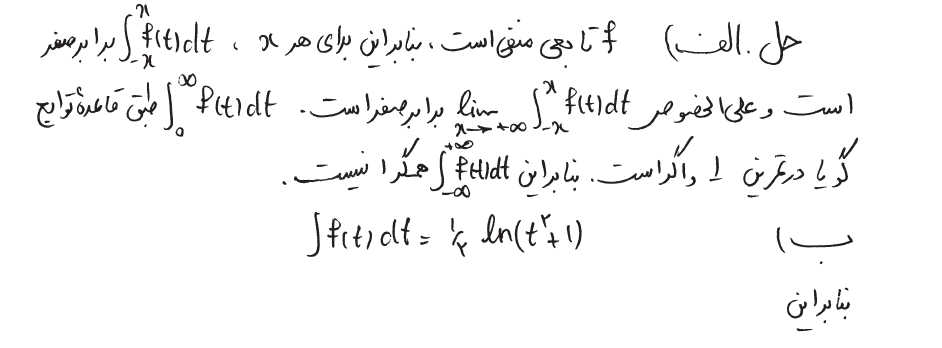 حل . الف) f تابعی منفی است ، بنابراین برای هر x ، ∫_{-x}^{x} f(t)dt برابر صفر
است و علی الخصوص lim_{x→+∞} ∫_{-x}^{x} f(t)dt برابر صفر است . ∫_{0}^{∞} f(t)dt طبق قاعدهٔ توابع
گویا در تمرین 1 واگراست . بنابراین ∫_{-∞}^{+∞} f(t)dt همگرا نیست .
ب) ∫f(t)dt = ۱/۲ ln(t^۲+1)
بنابراین